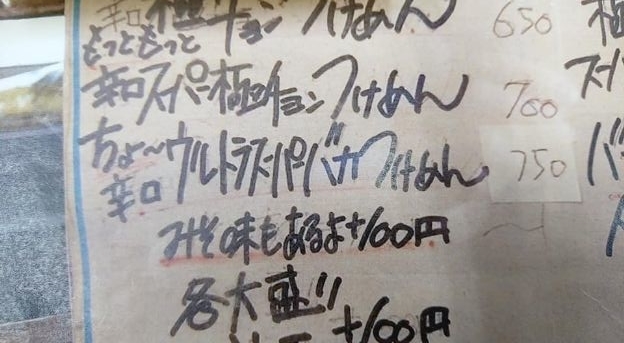 辛口極チョンつけめん 650
もっともっと
辛口スーパー極チョンつけめん 700
ちょ〜
辛口ウルトラスーパーバカつけめん 750
みその味もあるよ+100円
各大盛り
+100円
極
スーパ
バ